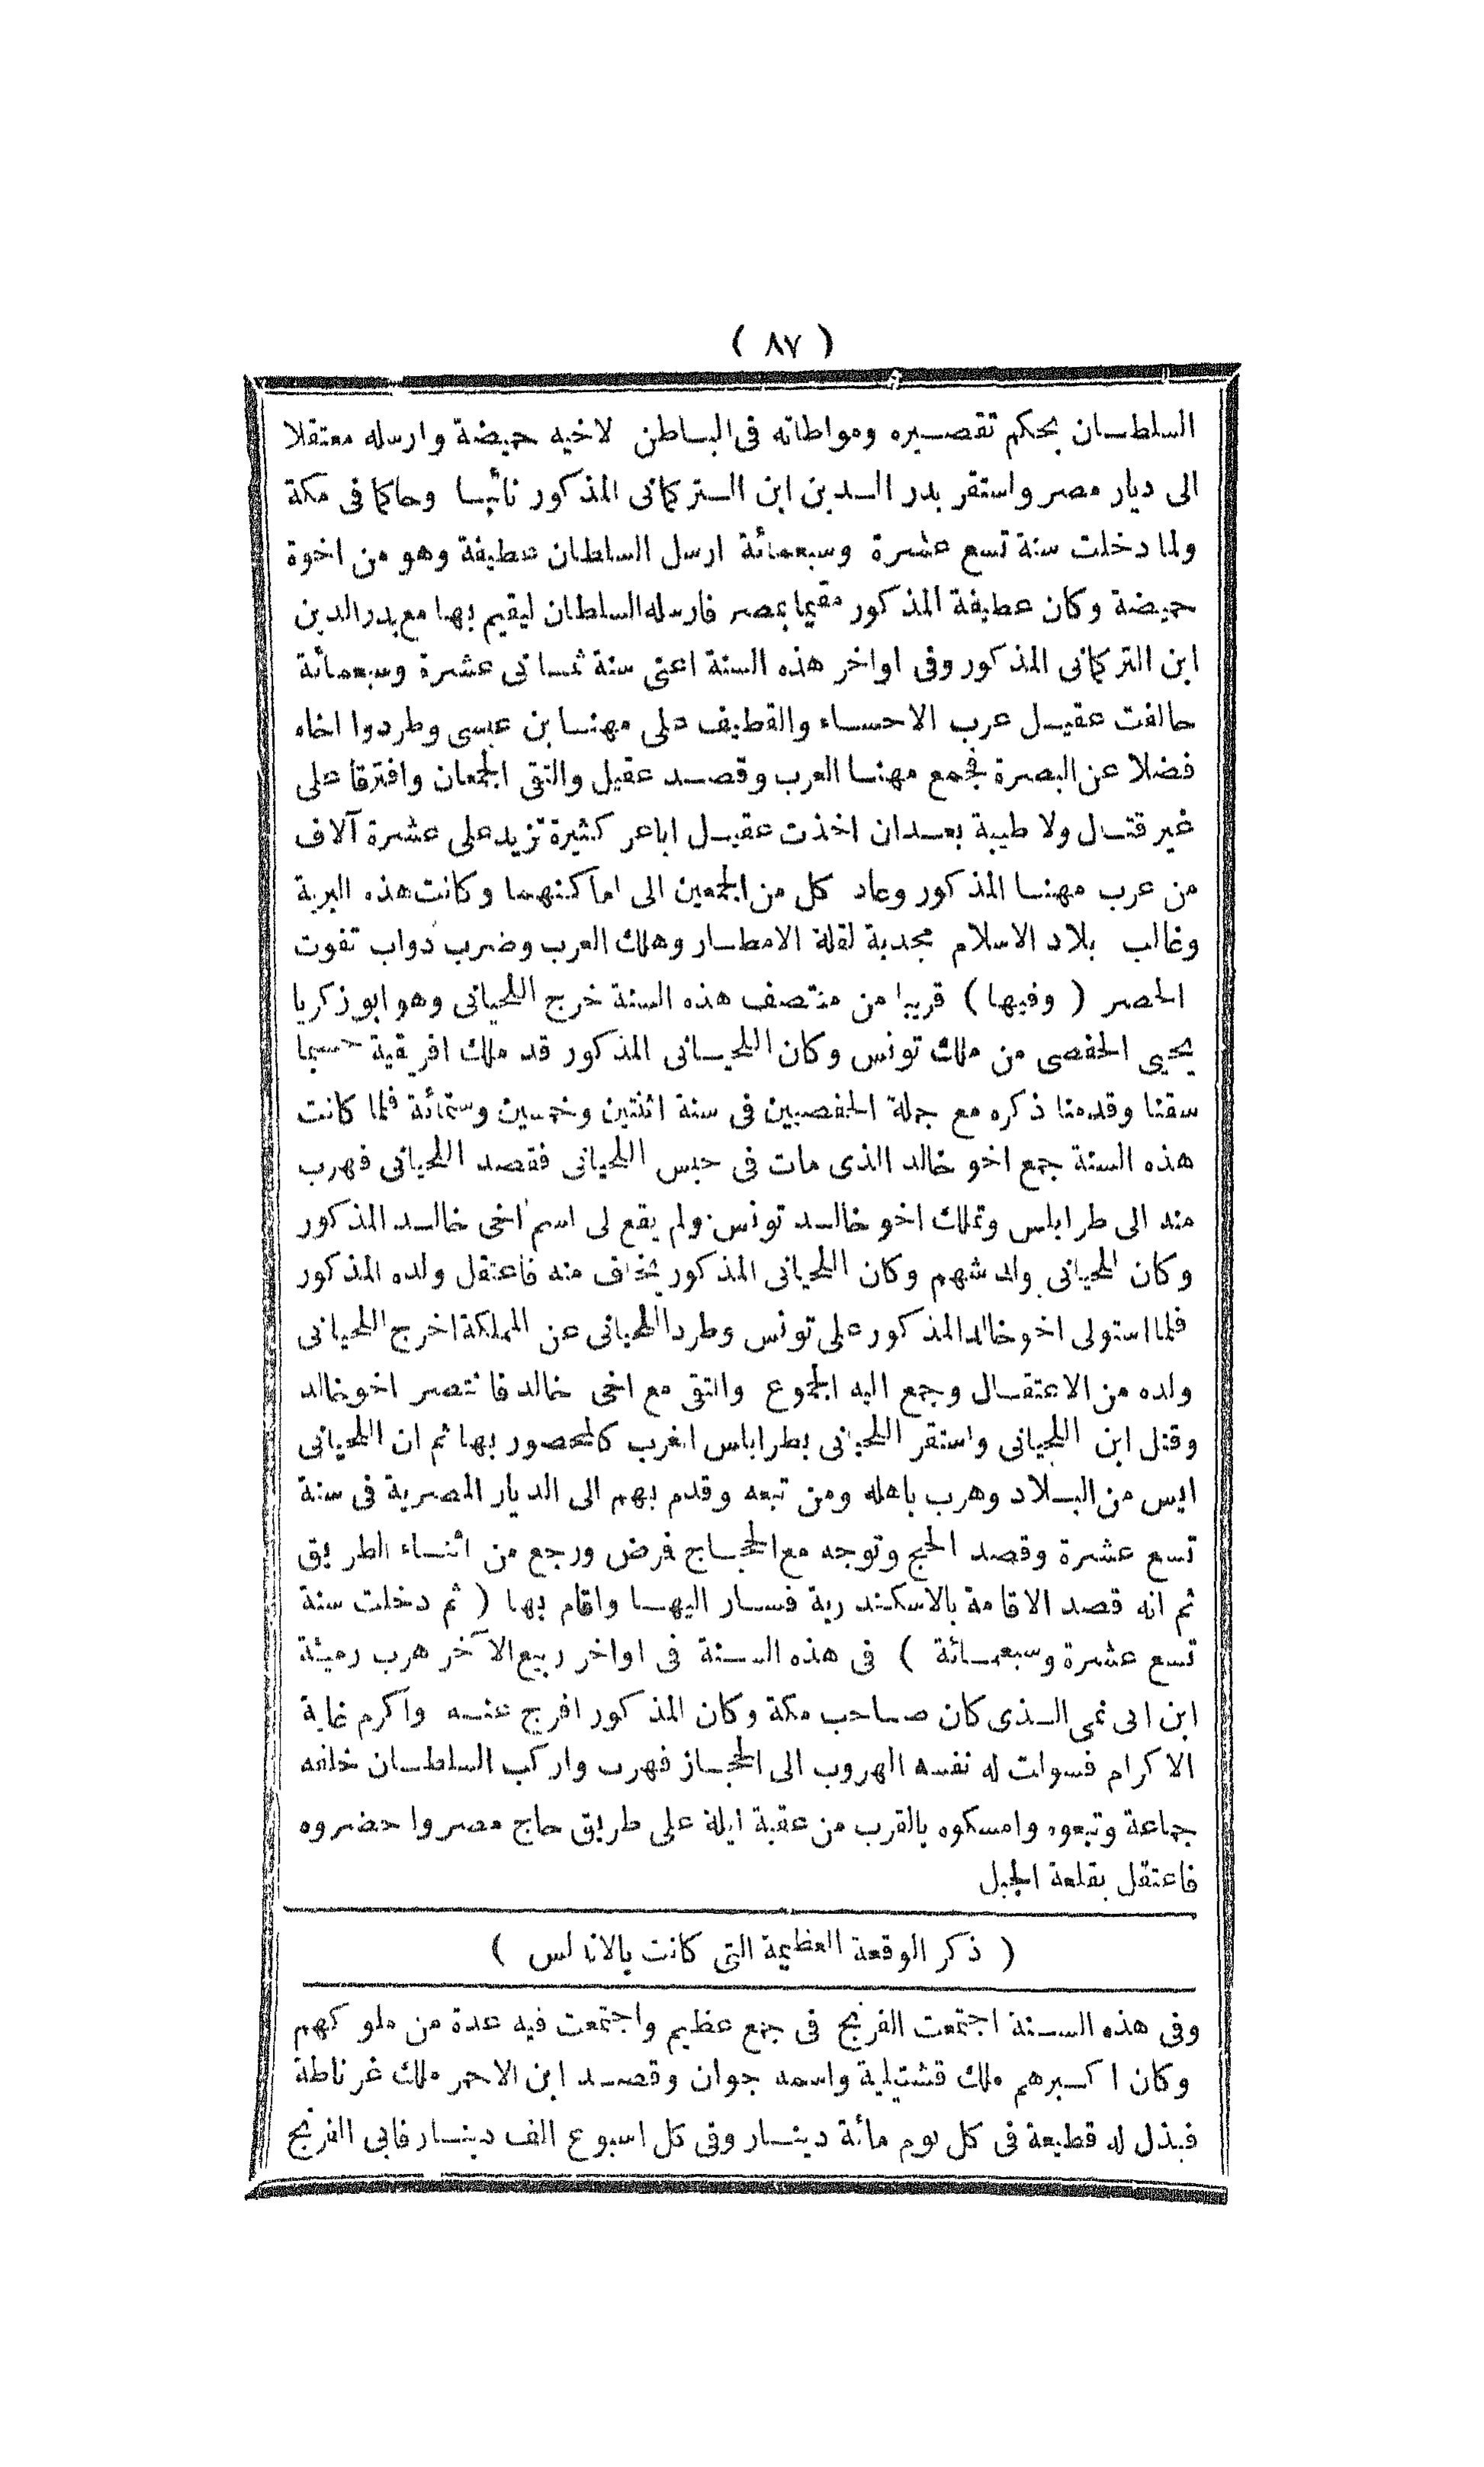 ( ٨٧ )
السلطان بحكم تقصيره ومواطاته فى الباطن لاخيه حميضة وارسله معتقلا
الى ديار مصر واستقر بدر الدين ابن التركمانى المذكور نائبا وحاكما فى مكة
ولما دخلت سنة تسع عشرة وسبعمائة ارسل السلطان عطيفة وهو من اخوة
حميضة وكان عطيفة المذكور مقيما بمصر فارسله السلطان ليقيم بها مع بدر الدين
ابن التركمانى المذكور وفى اواخر هذه السنة اعنى سنة ثمانى عشرة وسبعمائة
حالفت عقيل عرب الاحساء والقطيف على مهنا بن عيسى وطردوا اخاه
فضلا عن البصرة فجمع مهنا العرب وقصد عقيل والتقى الجمعان وافترقا على
غير قتال ولا طيبة بعد ان اخذت عقيل اباعر كثيرة تزيد على عشرة آلاف
من عرب مهنا المذكور وعاد كل من الجمعين الى اماكنهما وكانت هذه البرية
وغالب بلاد الاسلام مجدبة لقلة الامطار وهلك العرب وضرب دواب تفوت
الحصر ( وفيها ) قريبا من منتصف هذه السنة خرج اللحيانى وهو ابو زكريا
يحيى الحفصى من ملك تونس وكان اللحيانى المذكور قد ملك افريقية حسبما
سقنا وقدمنا ذكره مع جملة الحفصيين فى سنة اثنتين وخمسين وستمائة فلما كانت
هذه السنة جمع اخو خالد الذى مات فى حبس اللحيانى فقصد اللحيانى فهرب
منه الى طرابلس وتملك اخو خالد تونس ولم يقع لى اسم اخى خالد المذكور
وكان للحيانى ولد شهم وكان اللحيانى المذكور يخاف منه فاعتقل ولده المذكور
فلما استولى اخو خالد المذكور على تونس وطرد اللحيانى عن المملكة اخرج اللحيانى
ولده من الاعتقال وجمع اليه الجموع والتقى مع اخى خالد فانتصر اخو خالد
وقتل ابن اللحيانى واستقر اللحيانى بطرابلس الغرب كالمحصور بها ثم ان اللحيانى
ايس من البلاد وهرب باهله ومن تبعه وقدم بهم الى الديار المصرية فى سنة
تسع عشرة وقصد الحج وتوجه مع الحجاج فمرض ورجع من اثناء الطريق
ثم انه قصد الاقامة بالاسكندرية فسار اليها واقام بها ( ثم دخلت سنة
تسع عشرة وسبعمائة ) فى هذه السنة فى اواخر ربيع الآخر هرب رميثة
ابن ابى نمى الذى كان صاحب مكة وكان المذكور افرج عنه واكرم غاية
الاكرام فسولت له نفسه الهروب الى الحجاز فهرب واركب السلطان خلفه
جماعة وتبعوه وامسكوه بالقرب من عقبة ايلة على طريق حاج مصر واحضروه
فاعتقل بقلعة الجبل
( ذكر الوقعة العظيمة التى كانت بالاندلس )
وفى هذه السنة اجتمعت الفرنج فى جمع عظيم واجتمعت فيه عدة من ملوكهم
وكان اكبرهم ملك قشتيلية واسمه جوان وقصد ابن الاحمر ملك غرناطة
فبذل له قطيعة فى كل يوم مائة دينار وفى كل اسبوع الف دينار فابى الفرنج